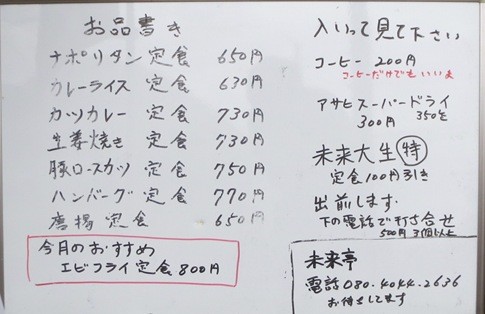 お品書き
ナポリタン定食 650円
カレーライス定食 630円
カツカレー 730円
生姜焼き定食 730円
豚ロースカツ定食 750円
ハンバーグ定食 770円
唐揚定食 650円
今月のおすすめ
エビフライ定食 800円
入いって見て下さい
コーヒー 200円
コーヒーだけでもいいよ
アサヒスーパードライ
300円 350㍑
未来大生 特
定食100円引き
出前します
下の電話で打ち合せ
500円 3個以上
未来亭
電話 080.4044.2636
お待ちしてます